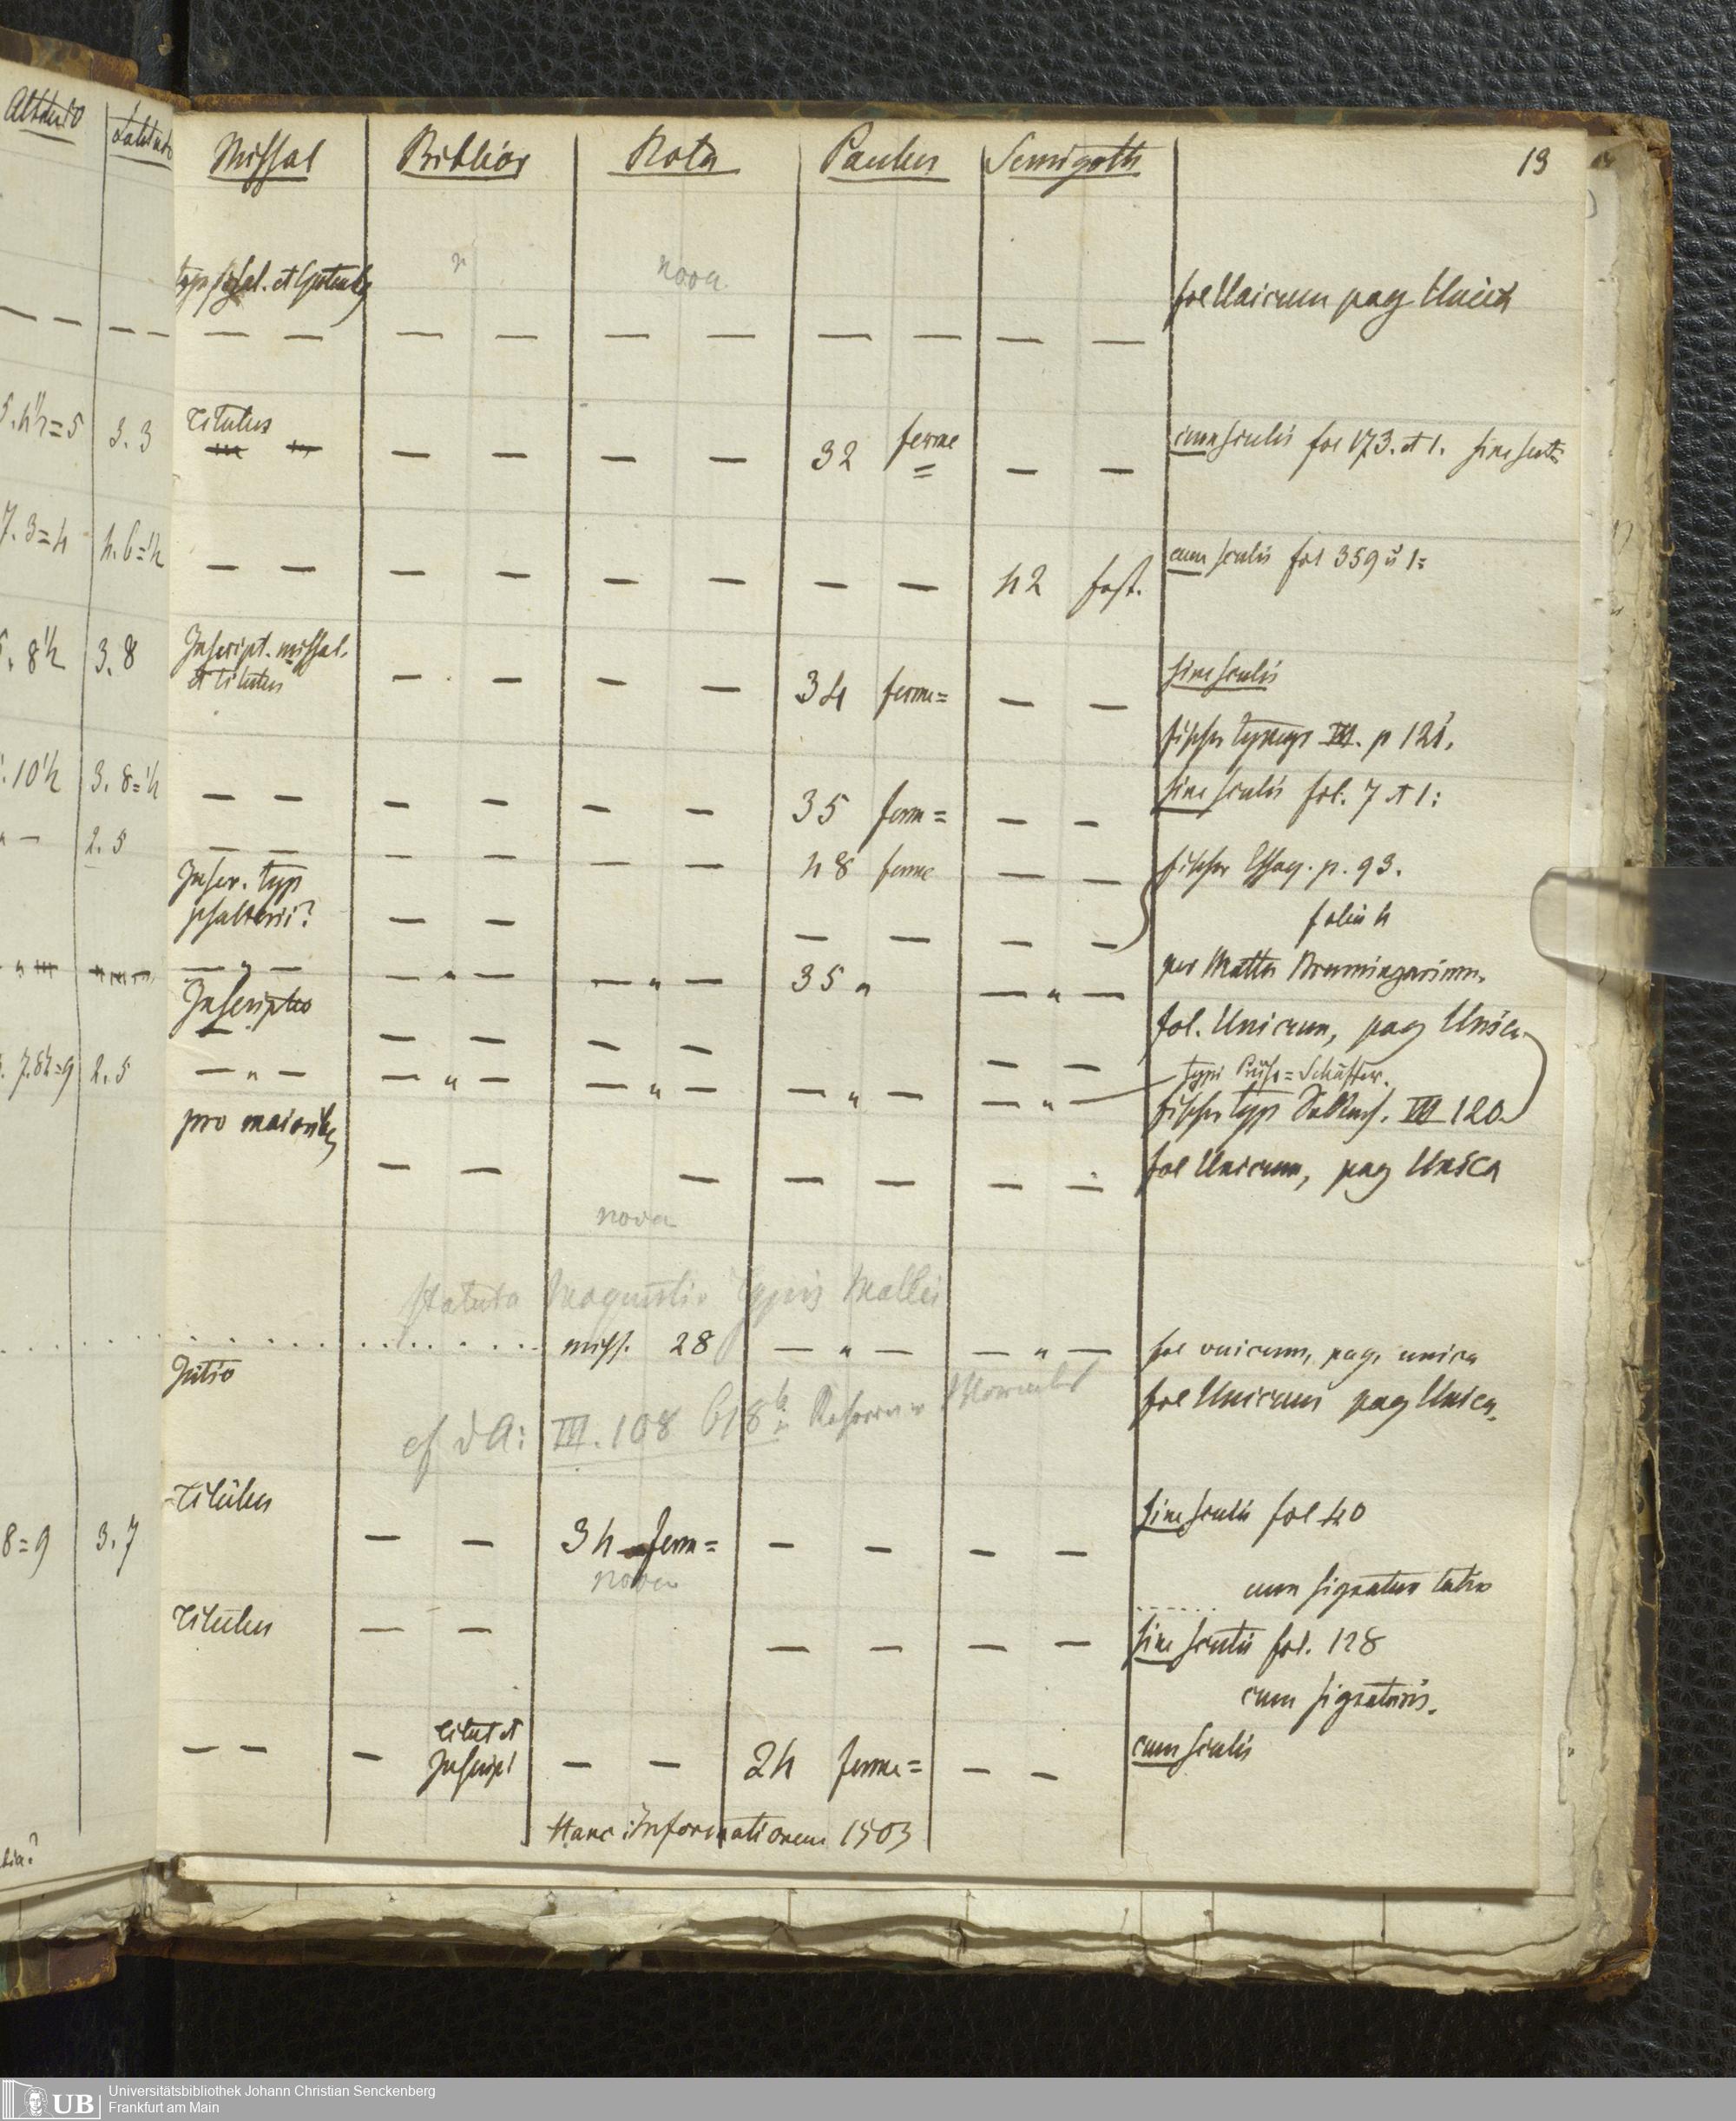 Altitudo Latitudo
Missal Biblior Nota Paulus Semigoth 13
nova fol Unicum pag Unica
— — — — — — — — — — — —
5. 4½=5 3. 3 Titulus — — — — 32 ferme = — — cum scutis fol 173. et 1.
7. 3=4 4. 6=½ — — — — — — — — 42 fast. cum scutis fol 359 u 1=
5. 8½ 3. 8 Inscript. missal.
et titulus — — — — 34 ferme= — — sine scutis
Fischer typogr III. p 121.
10½ 3. 8=½ — — — — — — 35 ferm= — — sine scutis fol. 7 et 1:
— 2. 5 — — — — — — 48 ferme — — Fischer Essay. p. 93.
Inscr. typ
psalterii? — — — — — — folia 4
— " — — " — — " — 35 " — " — per Matth
Inscriptio — — — — — — fol. Unicum, pag Unica
2. 5 — " — — " — — " — — " — — " — typi = Schäffer.
Fischer typ III 120
pro maiorib — — — — — — — fol Unicum, pag Unica
nova
statuta Moguntin typis Mallei
miss. 28 — " — — " — fol unicum, pag. unica
Initio fol Unicum pag Unica.
cf III. 108 618
Titulus
8=9 3. 7 — — 34 ferm= — — — — sine scutis fol 40
nova cum signatur
Titulus — — — — — — sine scutis fol. 128
cum signaturis.
— — — titul et
Inscript — — 24 ferme= — — cum scutis
Hanc Informationem 1503
UB Universitätsbibliothek Johann Christian Senckenberg
Frankfurt am Main